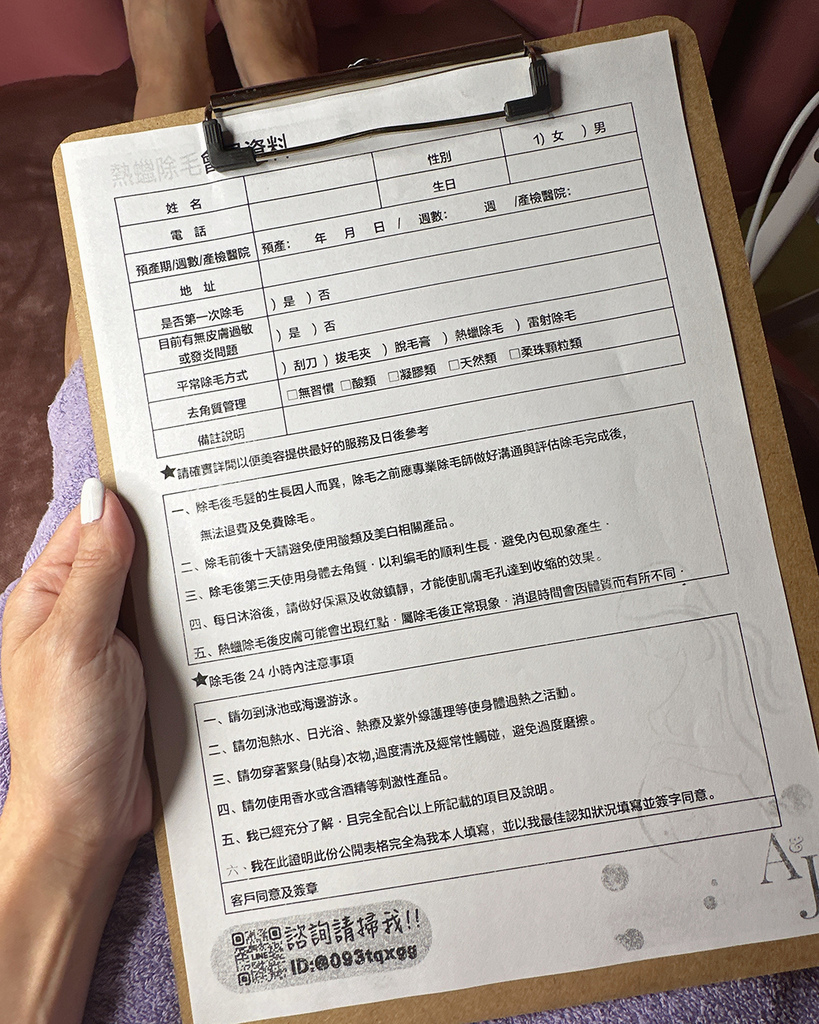 熱蠟除毛會員資料
姓 名 性別 1) 女 ) 男
電 話 生日
預產期/週數/產檢醫院 預產： 年 月 日 / 週數： 週 /產檢醫院：
地 址
是否第一次除毛 ) 是 ) 否
目前有無皮膚過敏
或發炎問題 ) 是 ) 否
平常除毛方式 ) 刮刀 ) 拔毛夾 ) 脫毛膏 ) 熱蠟除毛 ) 雷射除毛
去角質管理 □無習慣 □酸類 □凝膠類 □天然類 □柔珠顆粒類
備註說明
★請確實詳閱以便美容提供最好的服務及日後參考
一、除毛後毛髮的生長因人而異，除毛之前應專業除毛師做好溝通與評估除毛完成後，
無法退費及免費除毛。
二、除毛前後十天請避免使用酸類及美白相關產品。
三、除毛後第三天使用身體去角質．以利编毛的順利生長．避免內包现象產生．
四、每日沐浴後，請做好保濕及收斂鎮靜，才能使肌膚毛孔達到收縮的效果。
五、熱蠟除毛後皮膚可能會出現红點．屬除毛後正常現象．消退時間會因體質而有所不同．
★除毛後 24 小時內注意事項
一、請勿到泳池或海邊游泳。
二、請勿泡熱水、日光浴、熱療及紫外線護理等使身體過熱之活動。
三、請勿穿著緊身(貼身)衣物,過度清洗及經常性觸碰，避免過度磨擦。
四、請勿使用香水或含酒精等刺激性產品。
五、我已經充分了解．且完全配合以上所記載的項目及說明。
六、我在此證明此份公開表格完全為我本人填寫，並以我最佳認知狀況填寫並簽字同意。
客戶同意及簽章
A&J
諮詢請掃我!!
LINE
ID:@093tqxgg